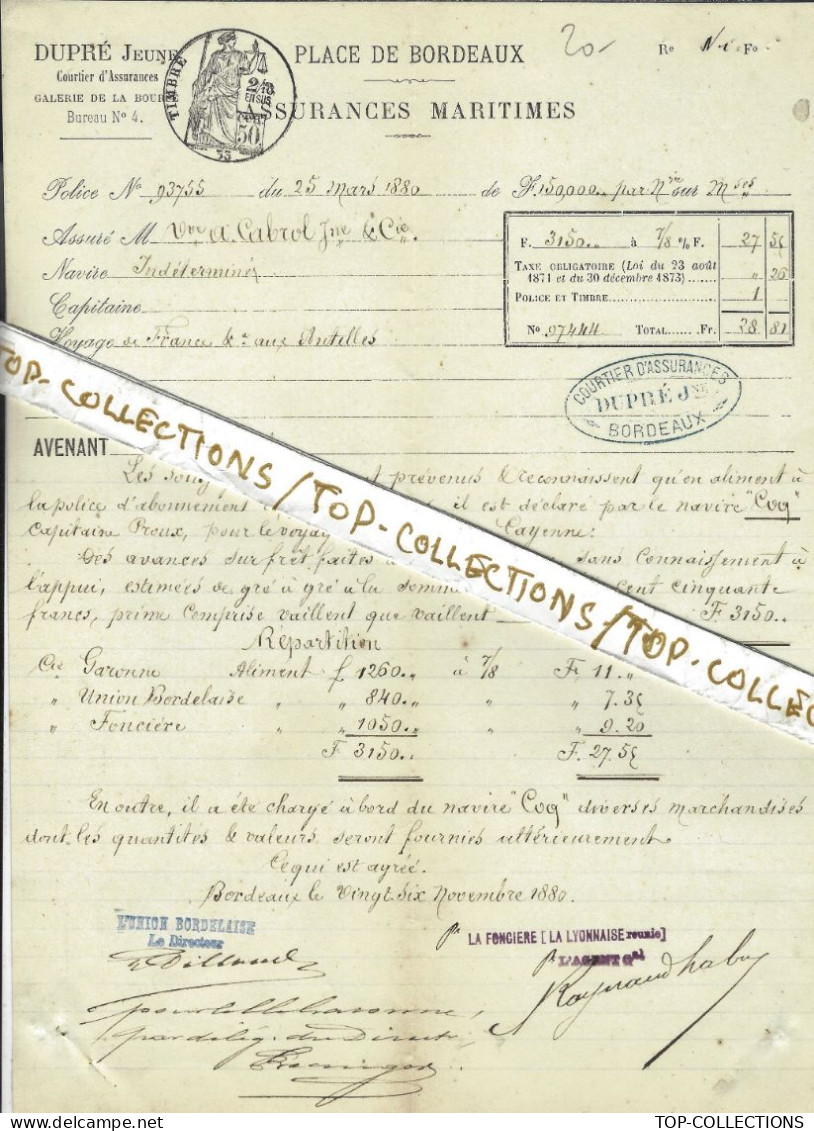 DUPRÉ JEUNE
Courtier d'Assurances
GALERIE DE LA BOURSE
Bureau No 4.
TIMBRE
2/10 EN SUS
50
33
PLACE DE BORDEAUX
ASSURANCES MARITIMES
20-
Re No i Fo
Police No 93755 du 25 Mars 1880 de F. 150,000.. par Nre sur Mses
Assuré M Vve A. Cabrol Jne & Cie.
Navire Indéterminés
Capitaine
Voyage de France &a aux Antilles
F. 3150.. à 7/8 % F. 27 56
TAXE OBLIGATOIRE (Loi du 23 août
1871 et du 30 décembre 1873) " 25
POLICE ET TIMBRE 1
No 97444 TOTAL Fr. 28 81
COURTIER D'ASSURANCES
DUPRÉ JNE
BORDEAUX
AVENANT
Les prévenus & reconnaissent qu'en aliment à
la police d'abonnement il est déclaré par le navire "Coq"
Capitaine Proux, pour le voyage Cayenne:
Des avances sur frêt faites à sans connaissement à
l'appui, estimées de gré à gré à la somme cent cinquante
francs, prime comprise vaillent que vaillent F 3150..
Répartition
Cie Garonne Aliment f. 1260.. à 7/8 F. 11 "
" Union Bordelaise " " 840.. " " 7.35
" Foncière " " 1050.. " " 9.20
F 3150.. F. 27.55
En outre, il a été chargé à bord du navire "Coq" diverses marchandises
dont les quantités & valeurs seront fournies ultérieurement
Ce qui est agréé.
Bordeaux le Vingt Six Novembre 1880.
L'UNION BORDELAISE
Le Directeur
Pr LA FONCIERE [LA LYONNAISE reunie]
Pr L'AGENT Gal
TOP-COLLECTIONS/TOP-COLLECTIONS/TOP-COLLEC
TOP-COLLECTIONS